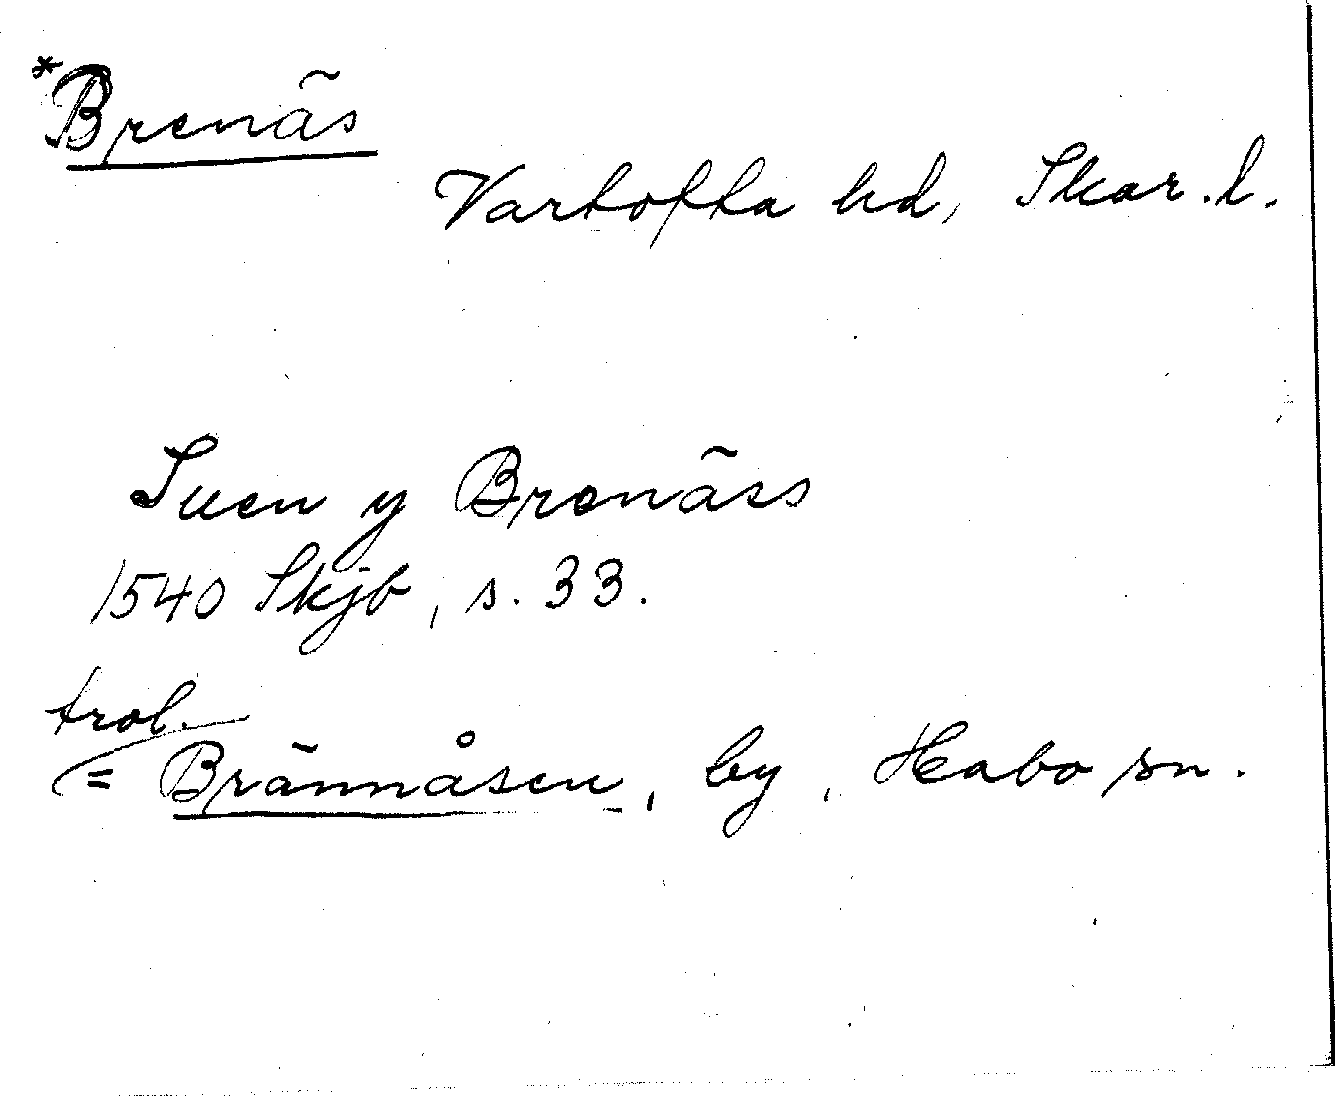 *Brenäs
Vartofta hd, Skar. l.
Suen y Brenäss
1540 Skjb, s. 33.
trol.
= Brännåsen, by, Habo sn.